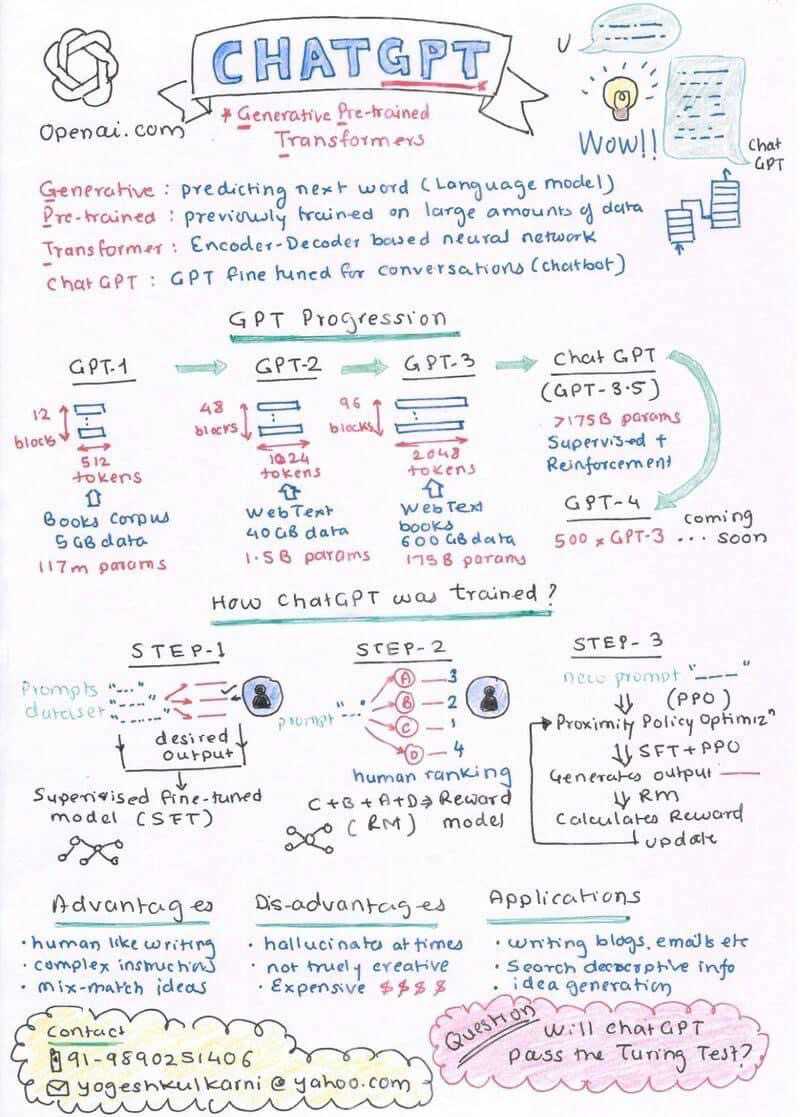 CHATGPT
Openai.com
* Generative Pre-trained
Transformers
U
Wow!!
Chat
GPT
Generative : predicting next word (Language model)
Pre-trained : previously trained on large amounts of data
Transformer : Encoder-Decoder based neural network
ChatGPT : GPT fine tuned for conversations (chatbot)
GPT Progression
GPT-1
12
blocks
512
tokens
Books Corpus
5 GB data
117m params
GPT-2
48
blocks
1024
tokens
WebText
40 GB data
1.5B params
GPT-3
96
blocks
2048
tokens
WebText
books
600 GB data
175B params
Chat GPT
(GPT-3.5)
>175B params
Supervised +
Reinforcement
GPT-4
500 x GPT-3 ... coming
soon
How ChatGPT was trained?
STEP-1
Prompts
dataset
desired
output
Supervised fine-tuned
model (SFT)
STEP-2
prompt "---"
A 3
B 2
C 1
D 4
human ranking
C+B+A+D → Reward
(RM) model
STEP-3
new prompt "---"
(PPO)
Proximity Policy Optimizn
SFT+PPO
Generates output
RM
Calculates Reward
update
Advantages
• human like writing
• complex instructions
• mix-match ideas
Dis-advantages
• hallucinates at times
• not truely creative
• Expensive $$$$
Applications
• writing blogs, emails etc
• Search info
• idea generation
Contact
91-9890251406
yogeshkulkarni@yahoo.com
Question
Will chatGPT
pass the Turing Test?